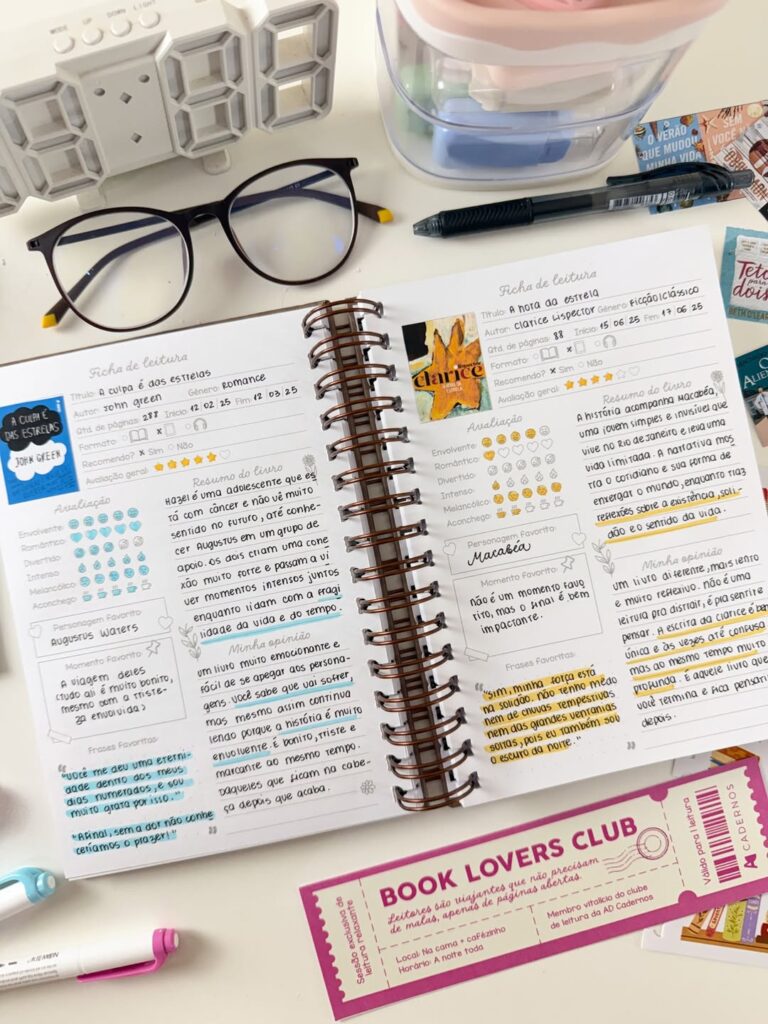 MODE UP DOWN LIGHT
O VERÃO
QUE MUDOU
MINHA VIDA
SEM
VOCÊ
Teto
para
dois
BETH O'LEARY
Ficha de leitura
A CULPA É
DAS ESTRELAS
JOHN GREEN
Título: A culpa é das estrelas
Autor: John Green Gênero: Romance
Qtd. de páginas: 288 Início: 12 02 25 Fim: 12 03 25
Formato: x
Recomendo? x Sim Não
Avaliação geral:
Avaliação
Envolvente:
Romântico:
Divertido:
Intenso:
Melancólico:
Aconchego:
Personagem Favorito:
Augustus Waters
Momento Favorito:
A viagem deles
(tudo ali é muito bonito,
mesmo com a triste-
za envolvida)
Frases Favoritas:
"Você me deu uma eterni-
dade dentro dos meus
dias numerados, e sou
muito grata por isso."
"Afinal, sem a dor não conhe
ceríamos o prazer!"
Resumo do livro
Hazel é uma adolescente que es
tá com câncer e não vê muito
sentido no futuro, até conhe-
cer Augustus em um grupo de
apoio. Os dois criam uma cone
xão muito forte e passam a vi
ver momentos intensos juntos
enquanto lidam com a fragi
lidade da vida e do tempo.
Minha opinião
Um livro muito emocionante e
fácil de se apegar aos persona-
gens. Você sabe que vai sofrer,
mas mesmo assim continua
lendo porque a história é muito
envolvente. É bonito, triste e
marcante ao mesmo tempo.
Daqueles que ficam na cabe-
ça depois que acaba.
Ficha de leitura
clarice
Título: A hora da estrela
Autor: Clarice Lispector Gênero: Ficção/Clássico
Qtd. de páginas: 88 Início: 15 06 25 Fim: 17 06 25
Formato: x
Recomendo? x Sim Não
Avaliação geral:
Avaliação
Envolvente:
Romântico:
Divertido:
Intenso:
Melancólico:
Aconchego:
Personagem Favorito:
Macabéa
Momento Favorito:
Não é um momento favo
rito, mas o final é bem
impactante.
Frases Favoritas:
"Sim, minha força está
na solidão. Não tenho medo
nem de chuvas tempestivas
nem das grandes ventanias
soltas, pois eu também sou
o escuro da noite."
Resumo do livro
A história acompanha Macabéa,
uma jovem simples e invisível que
vive no Rio de Janeiro e leva uma
vida limitada. A narrativa mos
tra o cotidiano e sua forma de
enxergar o mundo, enquanto traz
reflexões sobre a existência, soli-
dão e o sentido da vida.
Minha opinião
Um livro diferente, mais lento
e muito reflexivo. Não é uma
leitura pra distrair, é pra sentir e
pensar. A escrita da Clarice é bem
única e às vezes até confusa
mas ao mesmo tempo muito
profunda. É aquele livro que
você termina e fica pensan
depois.
Sessão exclusiva de
leitura relaxante
BOOK LOVERS CLUB
Leitores são viajantes que não precisam
de malas, apenas de páginas abertas.
Local: Na cama + cafézinho
Horário: A noite toda
Membro vitalício do clube
de leitura da AD Cadernos
Válido para 1 leitura
CADERNOS